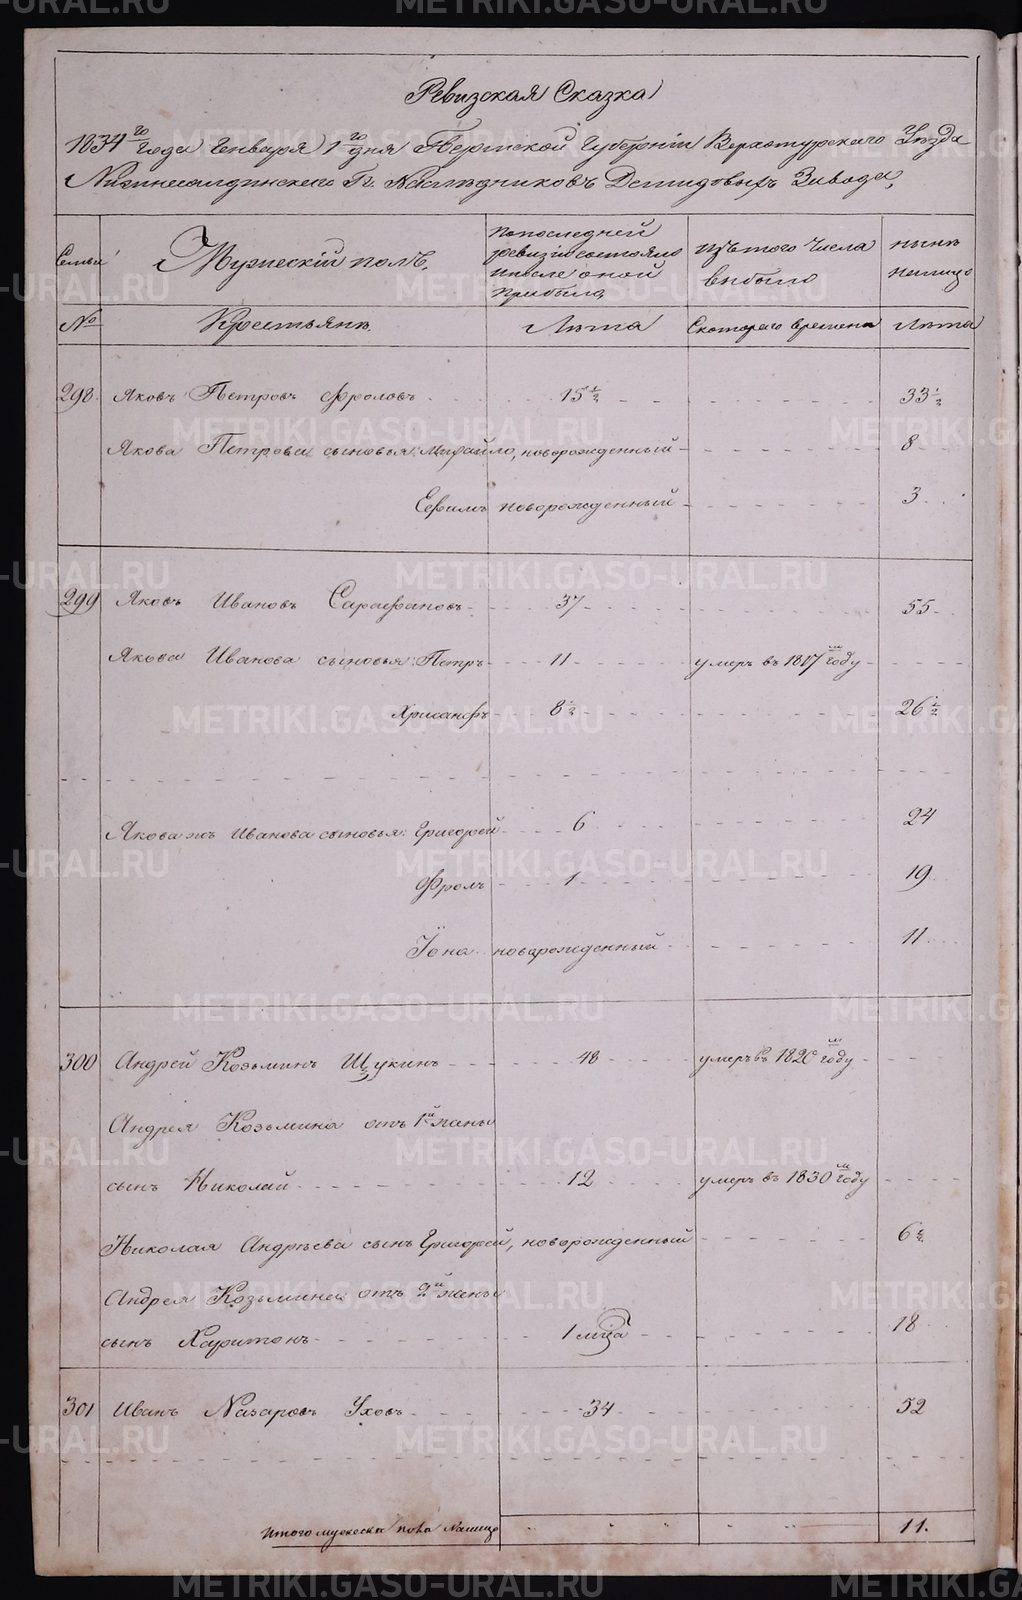 Ревизская Сказка
1834го года Генваря 1го дня Пермской Губернiи Верхотурскаго Уѣзда
Нижнесалдинскаго Гг. Наслѣдниковъ Демидовыхъ Завода,
Семьи
Мужескiй полъ,
По последней ревизiи состояло и после оной прибыло,
Изъ того числа выбыло
нынѣ на лицо
№
Крестьяне
Лѣта
С котораго времени
Лѣта
298. Яковъ Петровъ Фроловъ 15½ 33½
Якова Петрова сыновья: Михайло, новорожденный 8
Ефимъ новорожденный 3
299 Яковъ Ивановъ Сарафановъ 37 55
Якова Иванова сыновья: Петръ 11 умеръ въ 1817м году
Хрисанфъ 8½ 26½
Якова жъ Иванова сыновья: Григорей 6 24
Фролъ 1 19
Iона новорожденный 11
300 Андрей Козьминъ Щукинъ 48 умеръ въ 1820м году
Андрея Козьмина отъ 1й жены
сынъ Николай 12 умеръ въ 1830м году
Николая Андрѣева сынъ Григорей, новорожденный 6½
Андрея Козьмина отъ 2й жены
сынъ Харитонъ 1 мца 18
301 Иванъ Назаровъ Уховъ 34 52
Итого мужеска пола на лицо 11.
METRIKI.GASO-URAL.RU